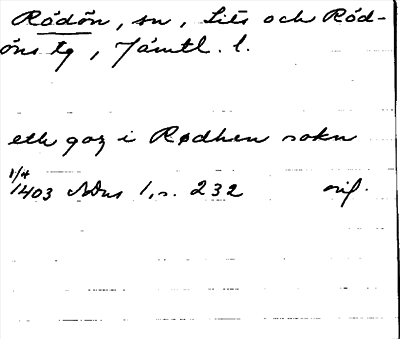 Rödön, sn, Lits och Röd-
öns tg, Jämtl. l.
eth goz i Rødhen sokn
1/4
1403 NDns 1, s. 232 orig.